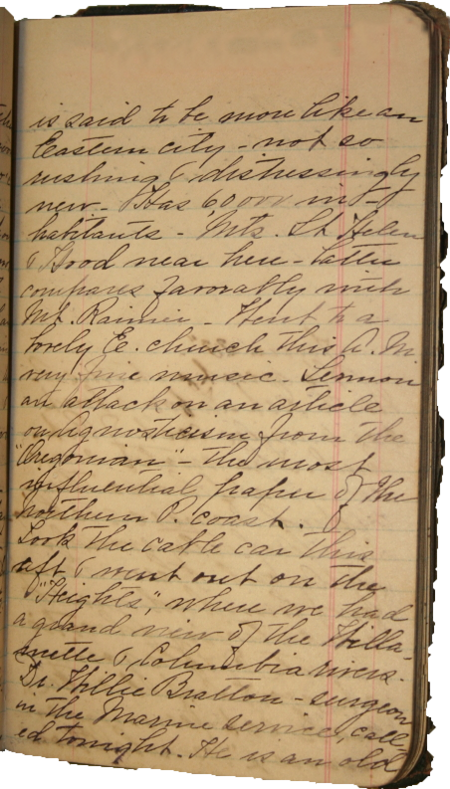 is said to be more like an
Eastern city - not so
rushing & distressingly
new - Has 60000 in-
habitants - Mts. St Helen
& Hood near here - latter
compares favorably with
Mt. Rainier - Went to a
lovely E. church this A.M.
very fine music. Sermon
an attack on an article
on Agnosticism from the
"Oregonian" - the most
influential paper of the
Northern P. coast.
Took the cable car this
aft & went out on the
"Heights", where we had
a grand view of the Willa-
mette & Columbia rivers.
Dr. Willie Bratton - surgeon
in the Marine service, call-
ed tonight. He is an old